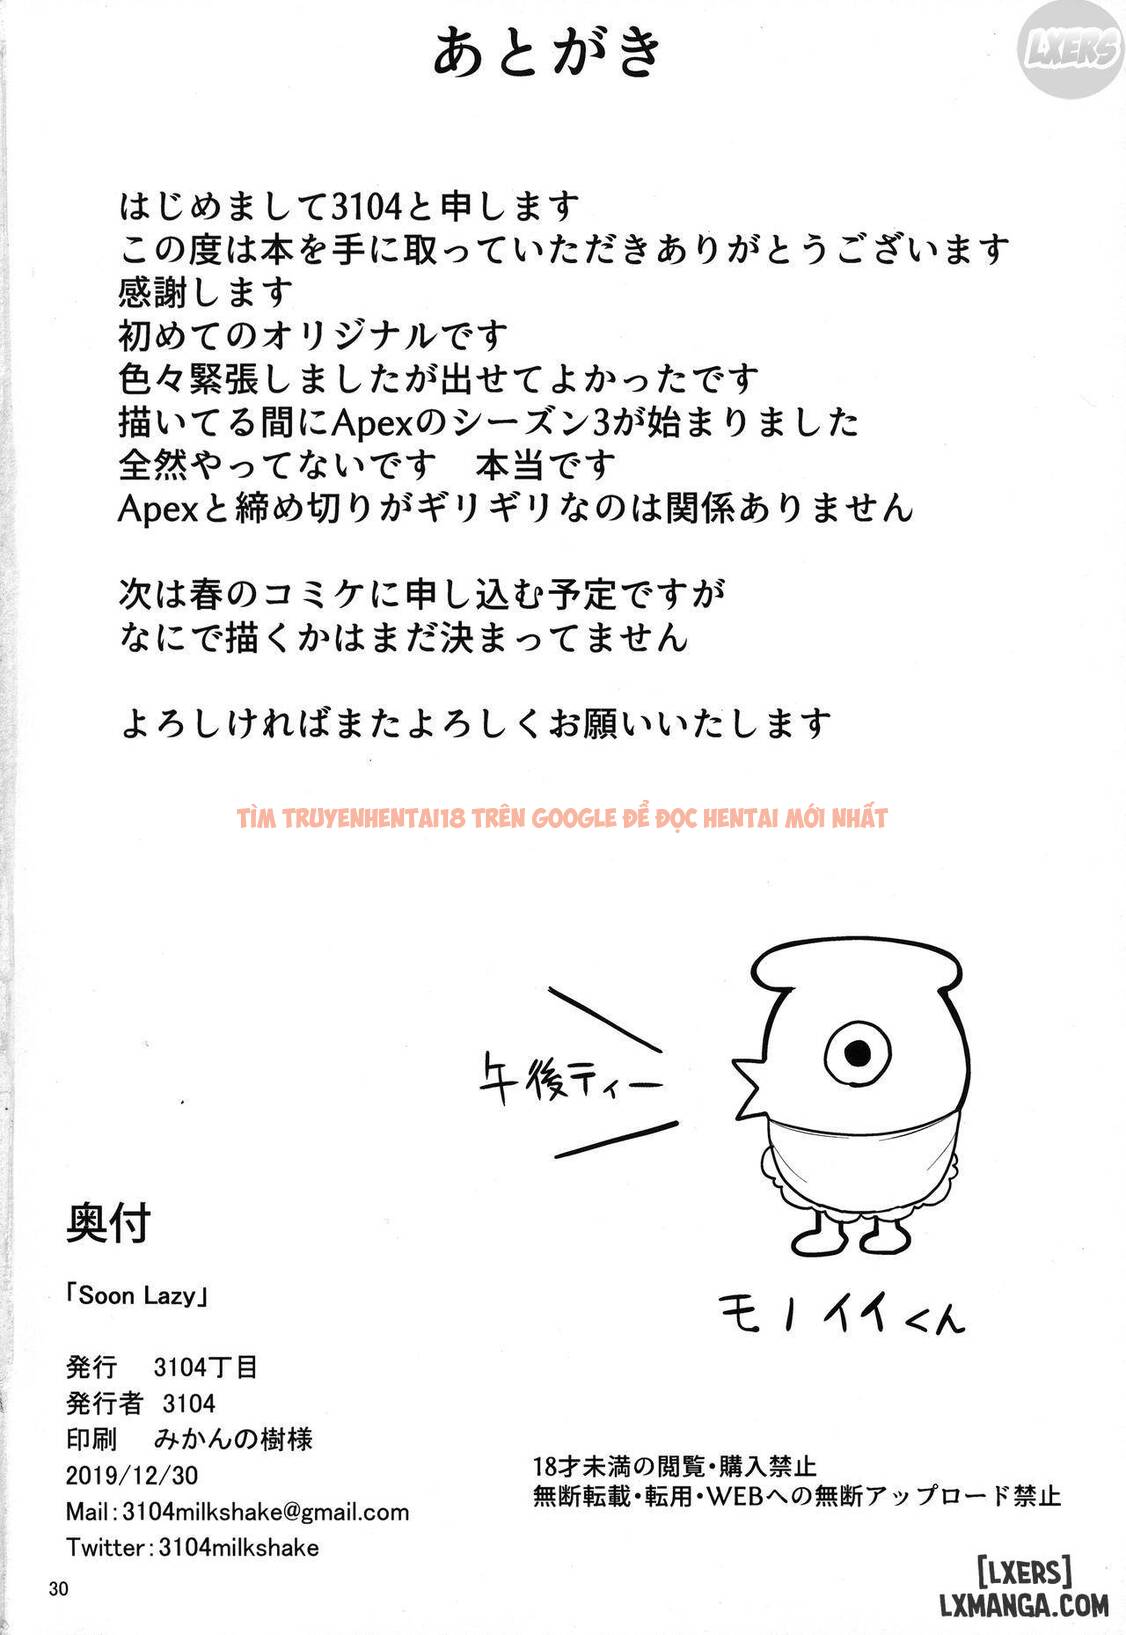 LXERS
あとがき
はじめまして3104と申します
この度は本を手に取っていただきありがとうございます
感謝します
初めてのオリジナルです
色々緊張しましたが出せてよかったです
描いてる間にApexのシーズン3が始まりました
全然やってないです　本当です
Apexと締め切りがギリギリなのは関係ありません
次は春のコミケに申し込む予定ですが
なにで描くかはまだ決まってません
よろしければまたよろしくお願いいたします
TÌM TRUYENHENTAI18 TRÊN GOOGLE ĐỂ ĐỌC HENTAI MỚI NHẤT
午後ティー
モノイイくん
奥付
「Soon Lazy」
発行　3104丁目
発行者　3104
印刷　みかんの樹様
2019/12/30
Mail：3104milkshake@gmail.com
Twitter：3104milkshake
18才未満の閲覧・購入禁止
無断転載・転用・WEBへの無断アップロード禁止
30
[LXERS]
LXMANGA.COM